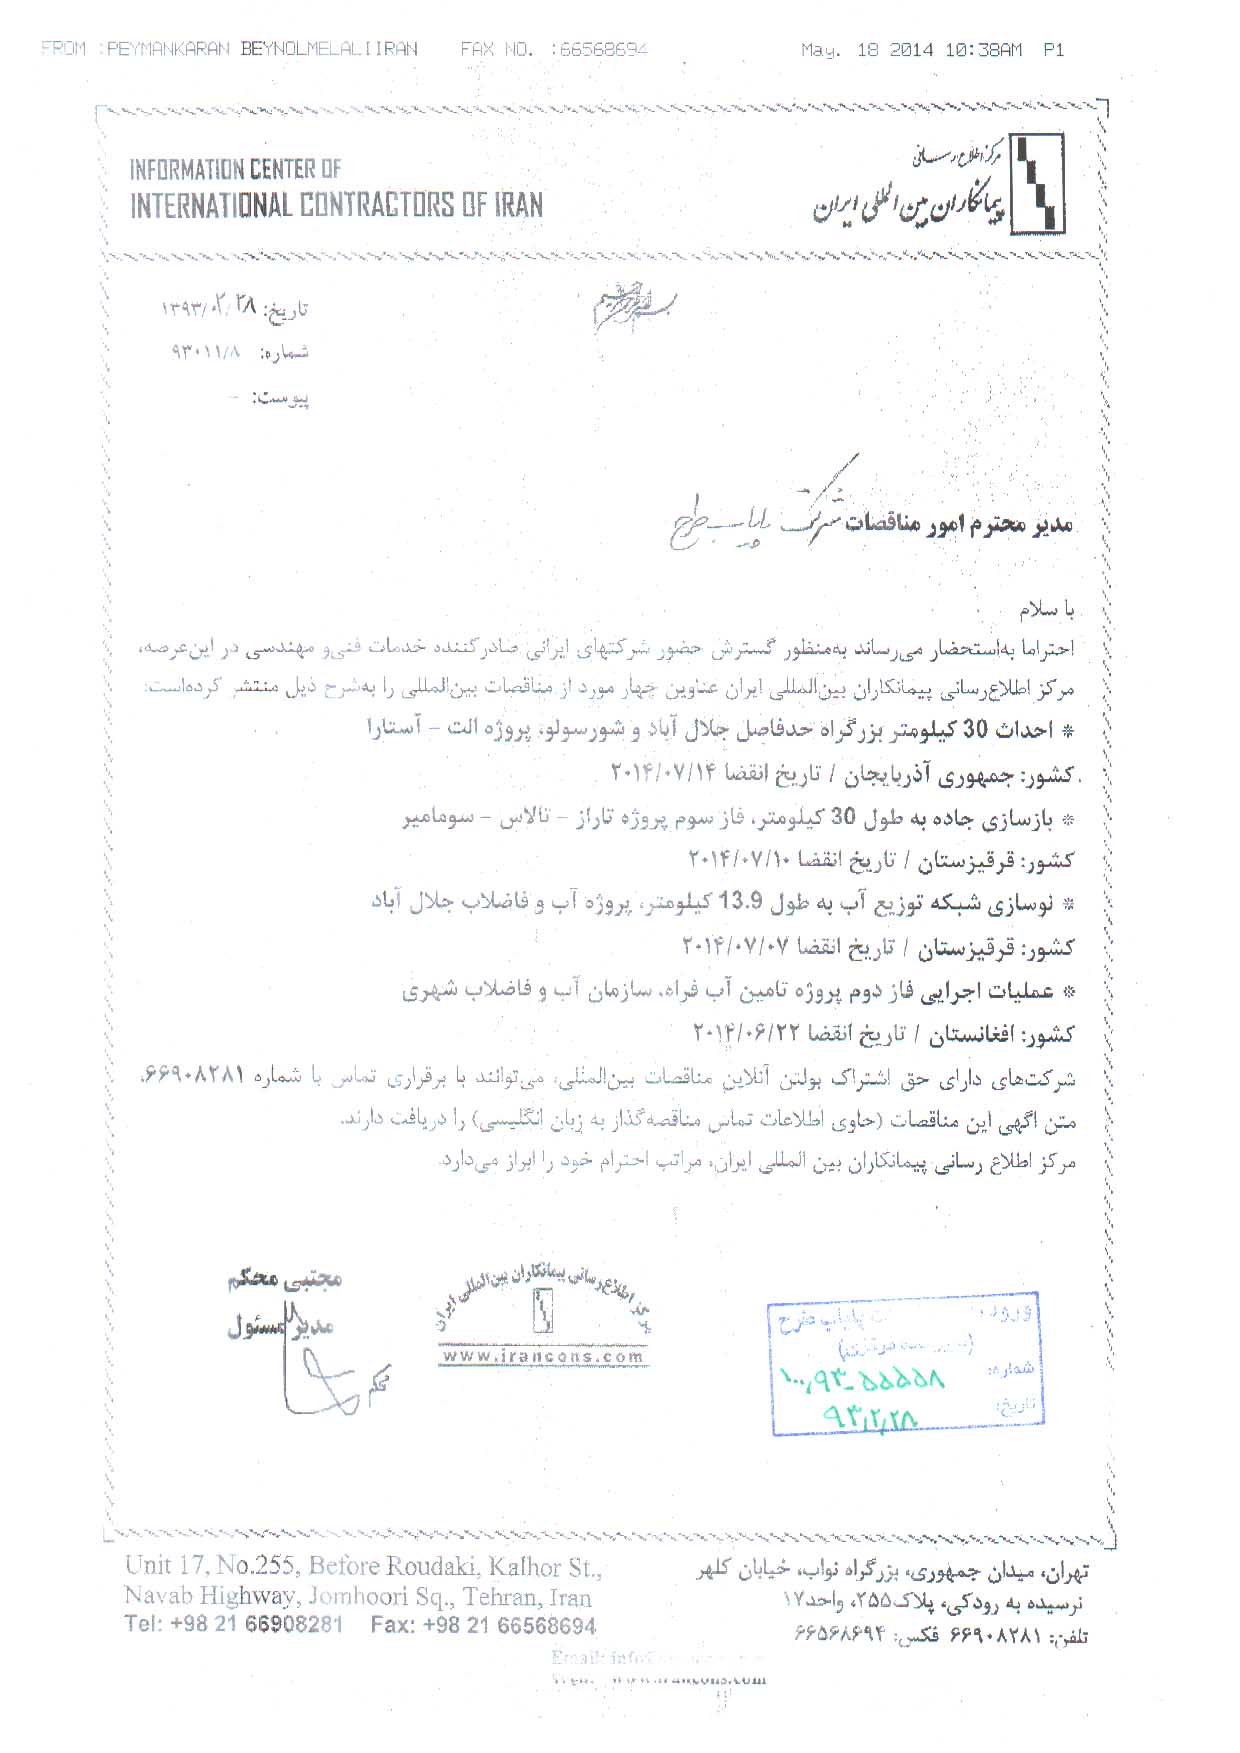 FROM :PEYMANKARAN BEYNOLMELALIIRAN FAX NO. :66568694 May. 18 2014 10:38AM P1
INFORMATION CENTER OF
INTERNATIONAL CONTRACTORS OF IRAN
مرکز اطلاع رسانی
پیمانکاران بین المللی ایران
تاریخ: ۱۳۹۳/۰۲/۲۸
شماره: ۹۳۰۱۱/۸
پیوست: -
مدیر محترم امور مناقصات شرکت پایاب طرح
با سلام
احتراما به‌استحضار می‌رساند به‌منظور گسترش حضور شرکتهای ایرانی صادرکننده خدمات فنی‌و مهندسی در این‌عرصه،
مرکز اطلاع‌رسانی پیمانکاران بین‌المللی ایران عناوین چهار مورد از مناقصات بین‌المللی را به‌شرح ذیل منتشر کرده‌است:
* احداث 30 کیلومتر بزرگراه حدفاصل جلال آباد و شورسولو، پروژه الت – آستارا
کشور: جمهوری آذربایجان / تاریخ انقضا ۲۰۱۴/۰۷/۱۴
* بازسازی جاده به طول 30 کیلومتر، فاز سوم پروژه تاراز – تالاس – سومامیر
کشور: قرقیزستان / تاریخ انقضا ۲۰۱۴/۰۷/۱۰
* نوسازی شبکه توزیع آب به طول 13.9 کیلومتر، پروژه آب و فاضلاب جلال آباد
کشور: قرقیزستان / تاریخ انقضا ۲۰۱۴/۰۷/۰۷
* عملیات اجرایی فاز دوم پروژه تامین آب فراه، سازمان آب و فاضلاب شهری
کشور: افغانستان / تاریخ انقضا ۲۰۱۴/۰۶/۲۲
شرکت‌های دارای حق اشتراک بولتن آنلاین مناقصات بین‌المللی، می‌توانند با برقراری تماس با شماره ۶۶۹۰۸۲۸۱،
متن آگهی این مناقصات (حاوی اطلاعات تماس مناقصه‌گذار به زبان انگلیسی) را دریافت دارند.
مرکز اطلاع رسانی پیمانکاران بین المللی ایران، مراتب احترام خود را ابراز می‌دارد.
مجتبی محکم
مدیر مسئول
مرکز اطلاع رسانی پیمانکاران بین‌المللی ایران
www.irancons.com
پایاب طرح
شماره: ۱۰۰,۹۳-۵۵۵۵۸
تاریخ: ۹۳,۲,۲۸
Unit 17, No.255, Before Roudaki, Kalhor St.,
Navab Highway, Jomhoori Sq., Tehran, Iran
Tel: +98 21 66908281 Fax: +98 21 66568694
تهران، میدان جمهوری، بزرگراه نواب، خیابان کلهر
نرسیده به رودکی، پلاک۲۵۵، واحد۱۷
تلفن: ۶۶۹۰۸۲۸۱ فکس: ۶۶۵۶۸۶۹۴
Email: info
www.irancons.com